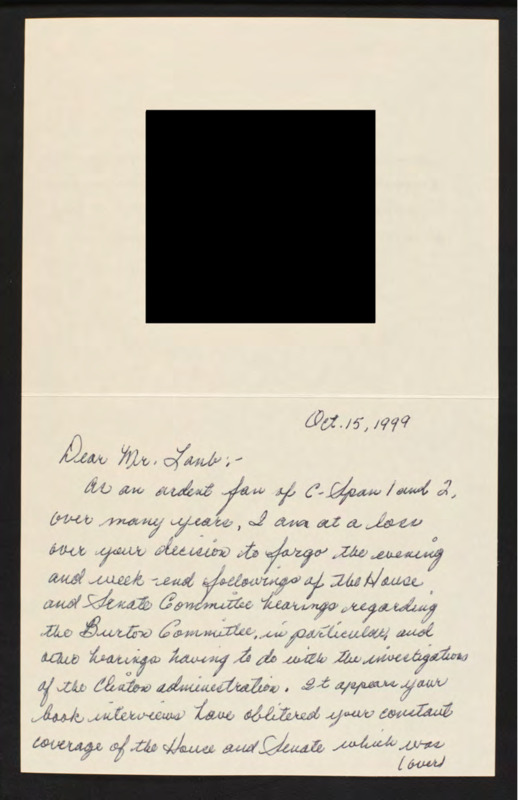 Oct. 15, 1999
Dear Mr. Lamb:-
As an ardent fan of C-Span 1 and 2,
over many years, I am at a loss
over your decision to forgo the evening
and week-end followings of the House
and Senate Committee hearings regarding
the Burton Committee, in particular, and
other hearings having to do with the investigations
of the Clinton administration. It appears your
book interviews have oblitered your constant
coverage of the House and Senate which was
(over)